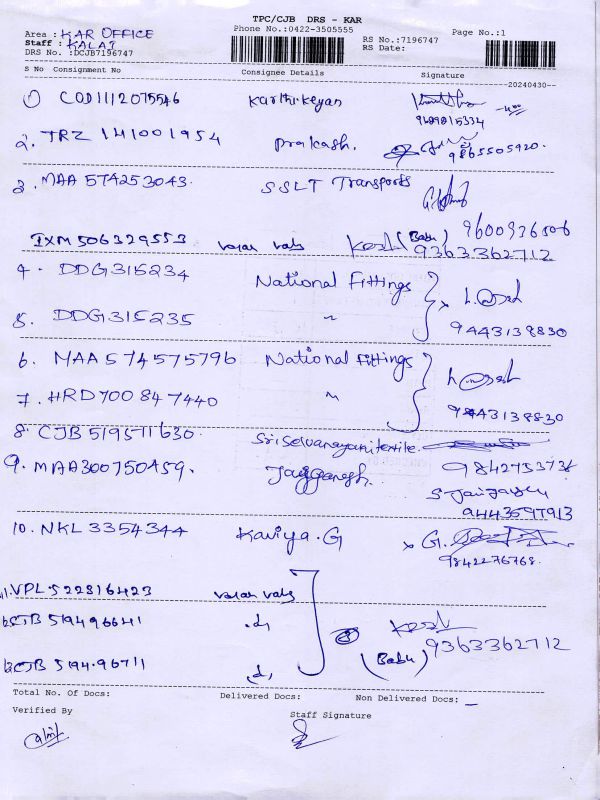 TPC/CJB DRS - KAR
Area : KAR OFFICE Phone No.:0422-3505555 RS No.:7196747 Page No.:1
Staff : KALAI RS Date:
DRS No. :DCJB7196747
S No Consignment No Consignee Details Signature
20240430
1 COD1112075546 Karthikeyan
9689815334
2. TRZ 141001954 Prakash. 9865505920.
3. MAA 574253043. SSLT Transports
9600936506
IXM 506329553 valar vals (Babu) 9363362712
4. DDG315234 National Fittings
5. DDG315235 " 9443138830
6. MAA 574575796 National Fittings
7. HRD700847440 " 9443138830
8. CJB 519571630.
9842753736
9. MAA300750459.
9443597913
10. NKL 3354344 Kaviya.G G.
9842276768.
11. VPL.522816423 valar vals
12. CJB 519496641 .d,
9363362712
13. CJB 5194.96711 d, (Babu)
Total No. Of Docs: Delivered Docs: Non Delivered Docs: _
Verified By Staff Signature